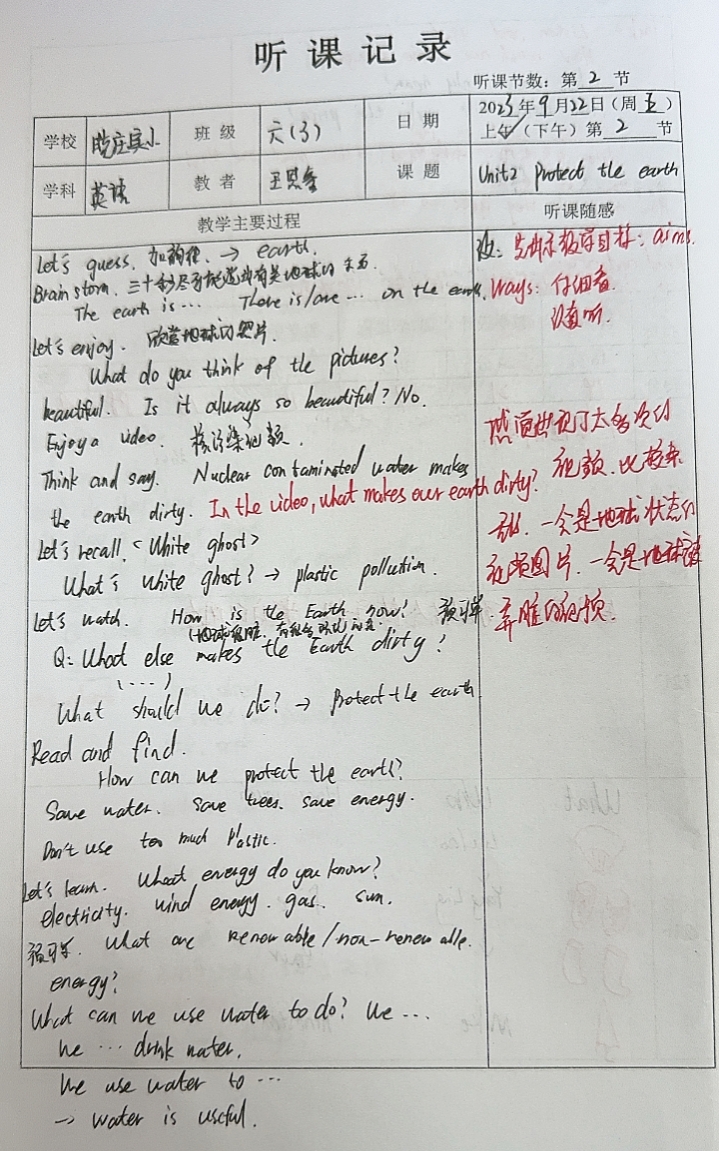 听课记录
听课节数：第 2 节
学校 皑庄实小 班级 六(3) 日期 2023年9月22日（周五）
上午（下午）第 2 节
学科 英语 教者 课题 Unit2 Protect the earth
教学主要过程 听课随感
Let's guess. → earth.
Brain storm. 三十秒尽可能说出有关地球的
The earth is ... There is/are ... on the earth.
Let's enjoy. 欣赏地球的照片.
What do you think of the pictures?
beautiful. Is it always so beautiful? No.
Enjoy a video. 核污染视频.
Think and say. Nuclear contaminated water makes
the earth dirty. In the video, what makes our earth dirty?
Let's recall. <White ghost>
What's white ghost? → plastic pollution.
Let's watch. How is the Earth now? 预习单.
Q: What else makes the Earth dirty?
(....)
What should we do? → Protect the earth
Read and find.
How can we protect the earth?
Save water. Save trees. save energy.
Don't use too much plastic.
Let's learn. What energy do you know?
electricity. wind energy. gas. sun.
预习单. What are renewable/non-renewable.
energy?
What can we use water to do? We ...
We ... drink water.
We use water to ...
→ water is useful.
议: 先揭示教学目标: aims.
Ways: 仔细看.
认真听.
感觉出现了太多次的
视频. 比较杂
乱. 一会是地球状态的
视频图片. 一会是地球被
弄脏的视频.